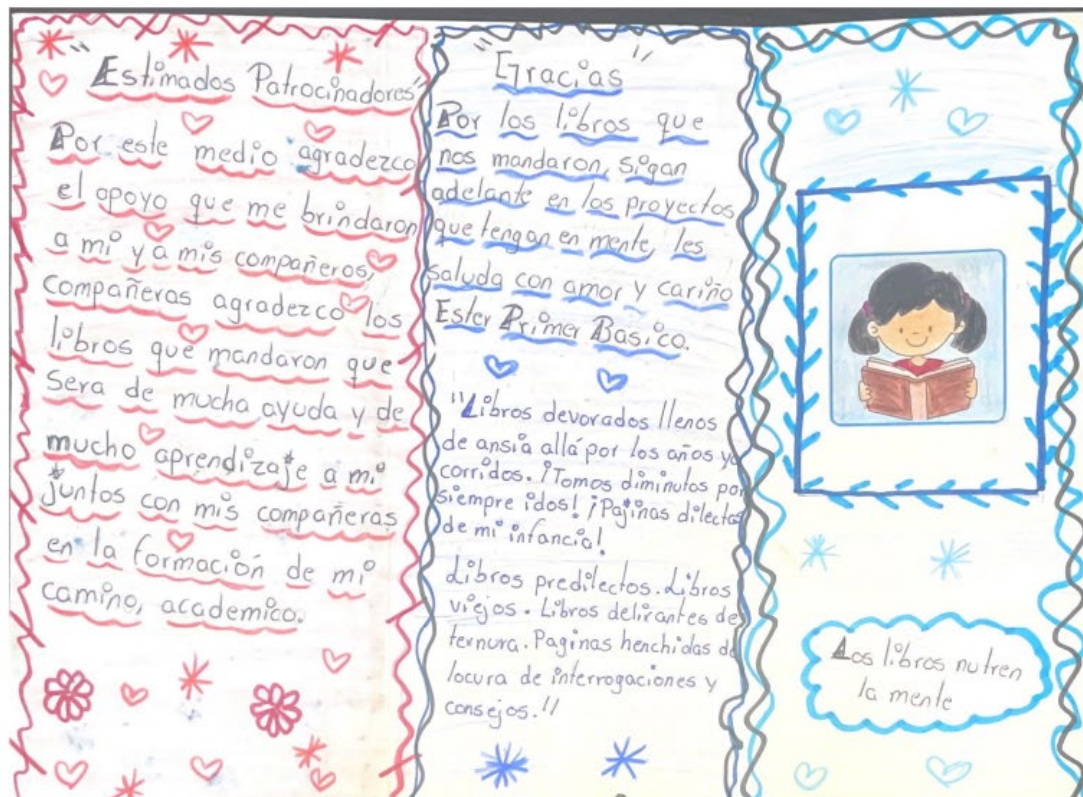 "Estimados Patrocinadores"
Por este medio agradezco
el apoyo que me brindaron
a mi y a mis compañeros,
compañeras agradezco los
libros que mandaron que
sera de mucha ayuda y de
mucho aprendizaje a mi
juntos con mis compañeras
en la formación de mi
camino, academico.
"Gracias"
Por los libros que
nos mandaron, sigan
adelante en los proyectos
que tengan en mente, les
saluda con amor y cariño
Ester Primer Basico.
"Libros devorados llenos
de ansia allá por los años ya
corridos. ¡Tomos diminutos por
siempre idos! ¡Paginas dilectas
de mi infancia!
Libros predilectos. Libros
viejos. Libros delirantes de
ternura. Paginas henchidas de
locura de interrogaciones y
consejos."
Los libros nutren
la mente